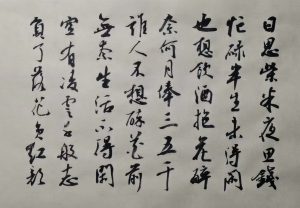 日思柴米夜思錢
忙碌半生未得闲
也想飲酒抱花醉
奈何月俸三五千
誰人不想醉花前
無奈生活不得閑
空有凌雲千般志
負了落花負紅顏